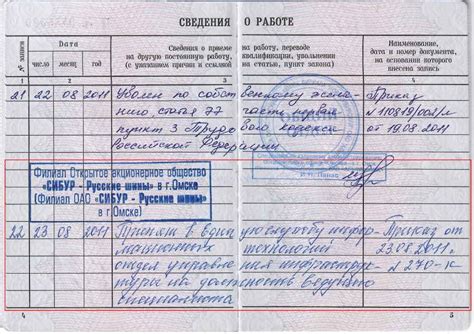 СВЕДЕНИЯ О РАБОТЕ
№ записи
Дата
число
месяц
год
Сведения о приеме на работу, переводе
на другую постоянную работу, квалификации, увольнении
(с указанием причин и ссылкой на статью, пункт закона)
Наименование,
дата и номер документа,
на основании которого
внесена запись
1 2 3 4
21 22 08 2011 Уволен по собственному жела-
нию, статья 77 часть первая
пункт 3 Трудового кодекса
Российской Федерации
Приказ
от 19.08.2011
Филиал Открытое акционерное общество
«СИБУР - Русские шины» в г.Омске
(Филиал ОАО «СИБУР - Русские шины»
в г.Омске)
22 23 08 2011 Принят в службу инфор-
мационных технологий
отдел управления инфраструк-
туры на должность ведущего
специалиста
Приказ от
23.08.2011г
№ 270-к
4
5